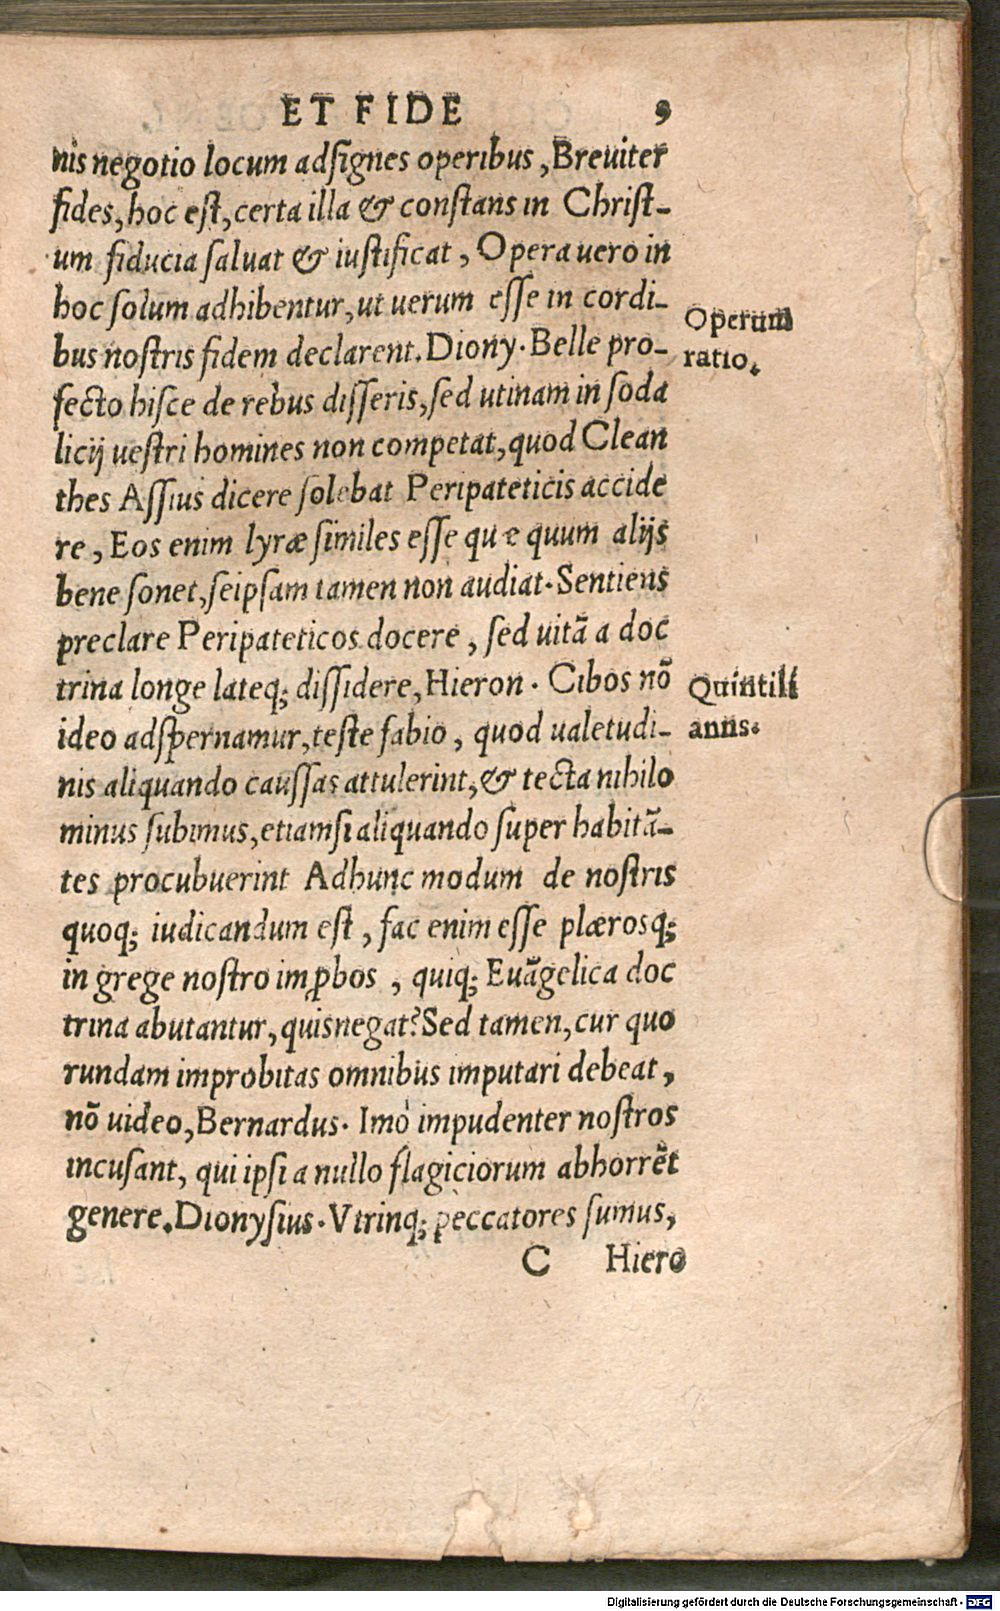 ET FIDE 9
nis negotio locum adsignes operibus, Breuiter
fides, hoc est, certa illa & constans in Christ-
um fiducia saluat & iustificat, Opera uero in
hoc solum adhibentur, ut uerum esse in cordi-
bus nostris fidem declarent. Diony. Belle pro-
fecto hisce de rebus disseris, sed utinam in soda
licij uestri homines non competat, quod Clean
thes Assius dicere solebat Peripateticis accide
re, Eos enim lyræ similes esse que quum alijs
bene sonet, seipsam tamen non audiat. Sentiens
preclare Peripateticos docere, sed uitã a doc
trina longe lateq; dissidere, Hieron. Cibos nõ
ideo adspernamur, teste fabio, quod ualetudi-
nis aliquando caussas attulerint, & tecta nihilo
minus subimus, etiamsi aliquando super habitã-
tes procubuerint Adhunc modum de nostris
quoq; iudicandum est, fac enim esse plærosq;
in grege nostro imꝓbos, quiq; Euãgelica doc
trina abutantur, quisnegat? Sed tamen, cur quo
rundam improbitas omnibus imputari debeat,
nõ uideo, Bernardus. Imò impudenter nostros
incusant, qui ipsi a nullo flagiciorum abhorrẽt
genere. Dionysius. Vtrinq; peccatores sumus,
C Hiero
Operum
ratio.
Quintili
anns.
Digitalisierung gefördert durch die Deutsche Forschungsgemeinschaft - DFG